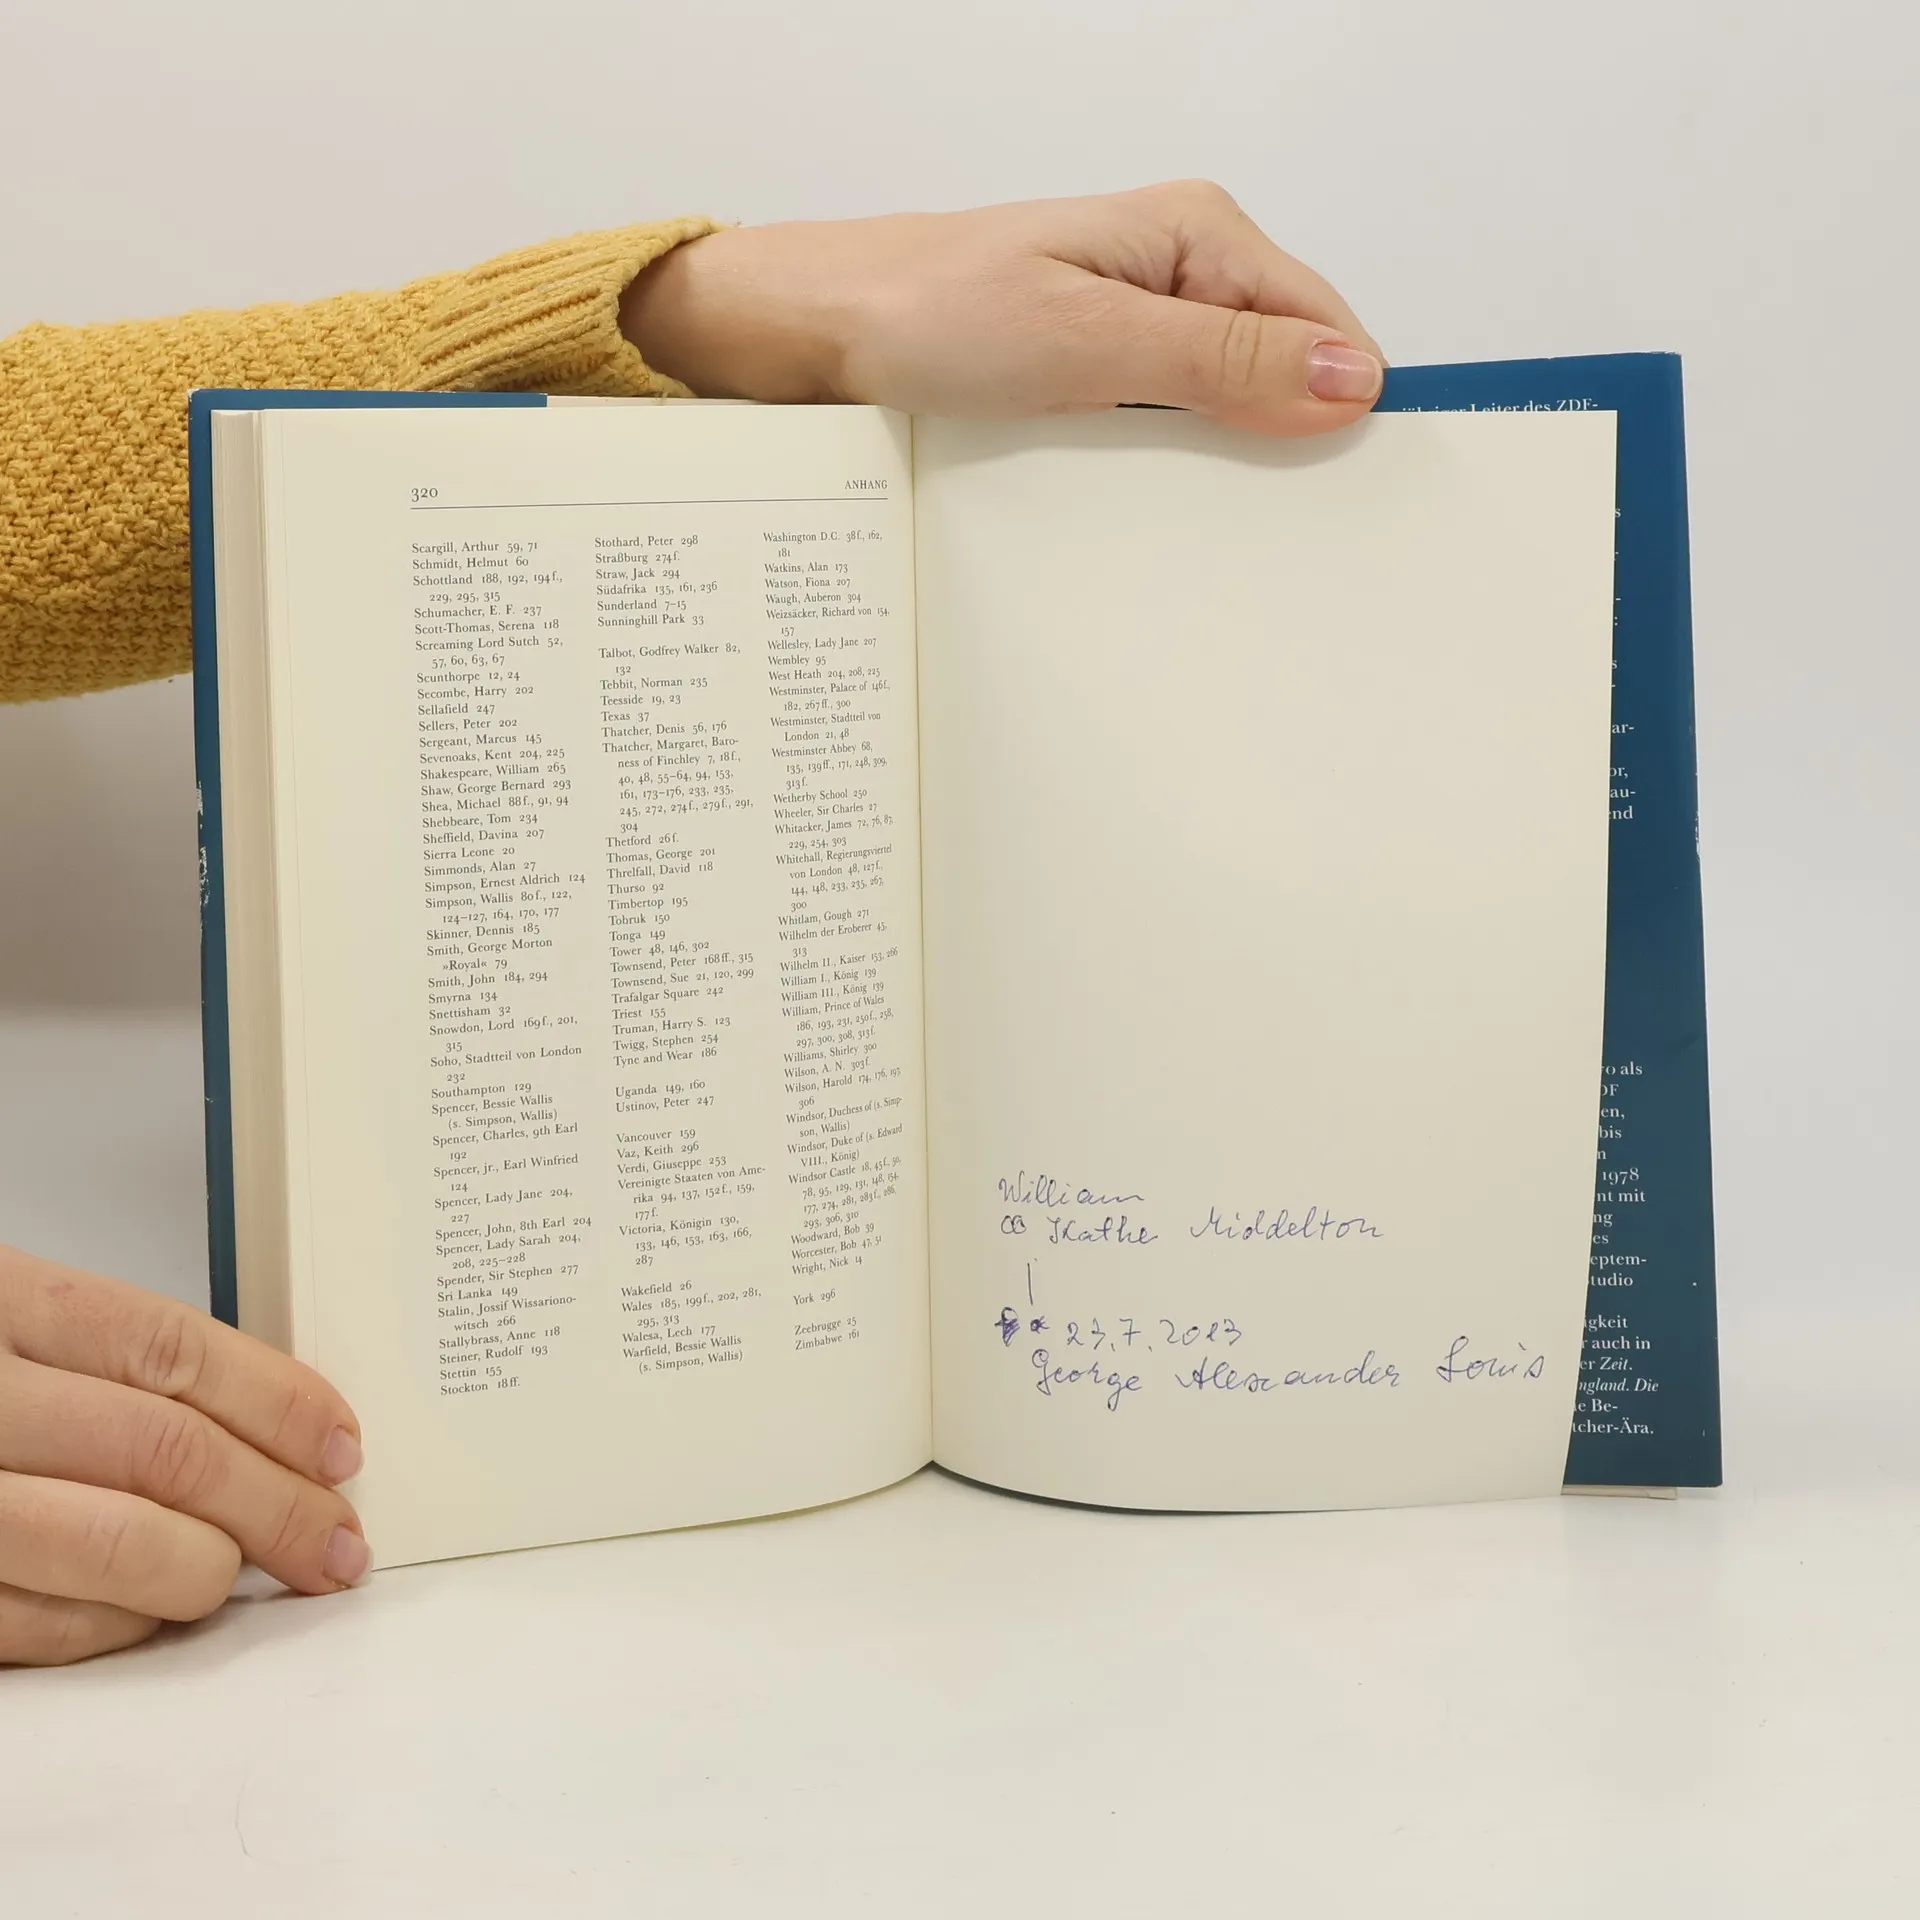 320
ANHANG
Scargill, Arthur 59, 71
Schmidt, Helmut 60
Schottland 188, 192, 194f.,
229, 295, 315
Schumacher, E. F. 237
Scott-Thomas, Serena 118
Screaming Lord Sutch 52,
57, 60, 63, 67
Scunthorpe 12, 24
Secombe, Harry 202
Sellafield 247
Sellers, Peter 202
Sergeant, Marcus 145
Sevenoaks, Kent 204, 225
Shakespeare, William 265
Shaw, George Bernard 293
Shea, Michael 88f., 91, 94
Shebbeare, Tom 234
Sheffield, Davina 207
Sierra Leone 20
Simmonds, Alan 27
Simpson, Ernest Aldrich 124
Simpson, Wallis 80f., 122,
124–127, 164, 170, 177
Skinner, Dennis 185
Smith, George Morton
»Royal« 79
Smith, John 184, 294
Smyrna 134
Snettisham 32
Snowdon, Lord 169f., 201,
315
Soho, Stadtteil von London
232
Southampton 129
Spencer, Bessie Wallis
(s. Simpson, Wallis)
Spencer, Charles, 9th Earl
192
Spencer, jr., Earl Winfried
124
Spencer, Lady Jane 204,
227
Spencer, John, 8th Earl 204
Spencer, Lady Sarah 204,
208, 225–228
Spender, Sir Stephen 277
Sri Lanka 149
Stalin, Jossif Wissariono-
witsch 266
Stallybrass, Anne 118
Steiner, Rudolf 193
Stettin 155
Stockton 18ff.
Stothard, Peter 298
Straßburg 274f.
Straw, Jack 294
Südafrika 135, 161, 236
Sunderland 7–15
Sunninghill Park 33
Talbot, Godfrey Walker 82,
132
Tebbit, Norman 235
Teesside 19, 23
Texas 37
Thatcher, Denis 56, 176
Thatcher, Margaret, Baro-
ness of Finchley 7, 18f.,
40, 48, 55–64, 94, 153,
161, 173–176, 233, 235,
245, 272, 274f., 279f., 291,
304
Thetford 26f.
Thomas, George 201
Threlfall, David 118
Thurso 92
Timbertop 195
Tobruk 150
Tonga 149
Tower 48, 146, 302
Townsend, Peter 168ff., 315
Townsend, Sue 21, 120, 299
Trafalgar Square 242
Triest 155
Truman, Harry S. 123
Twigg, Stephen 254
Tyne and Wear 186
Uganda 149, 160
Ustinov, Peter 247
Vancouver 159
Vaz, Keith 296
Verdi, Giuseppe 253
Vereinigte Staaten von Ame-
rika 94, 137, 152f., 159,
177f.
Victoria, Königin 130,
133, 146, 153, 163, 166,
287
Wakefield 26
Wales 185, 199f., 202, 281,
295, 313
Walesa, Lech 177
Warfield, Bessie Wallis
(s. Simpson, Wallis)
Washington D.C. 38f., 162,
181
Watkins, Alan 173
Watson, Fiona 207
Waugh, Auberon 304
Weizsäcker, Richard von 154,
157
Wellesley, Lady Jane 207
Wembley 95
West Heath 204, 208, 225
Westminster, Palace of 146f.,
182, 267ff., 300
Westminster, Stadtteil von
London 21, 48
Westminster Abbey 68,
135, 139ff., 171, 248, 309,
313f.
Wetherby School 250
Wheeler, Sir Charles 27
Whitacker, James 72, 76, 87,
229, 254, 303
Whitehall, Regierungsviertel
von London 48, 127f.,
144, 148, 233, 235, 267,
300
Whitlam, Gough 271
Wilhelm der Eroberer 45,
313
Wilhelm II., Kaiser 153, 266
William I., König 139
William III., König 139
William, Prince of Wales
186, 193, 231, 250f., 258,
297, 300, 308, 313f.
Williams, Shirley 300
Wilson, A. N. 303f.
Wilson, Harold 174, 176, 197,
306
Windsor, Duchess of (s. Simp-
son, Wallis)
Windsor, Duke of (s. Edward
VIII., König)
Windsor Castle 18, 45f., 50,
78, 95, 129, 131, 148, 154,
177, 274, 281, 283f., 286,
293, 306, 310
Woodward, Bob 39
Worcester, Bob 47, 51
Wright, Nick 14
York 296
Zeebrugge 25
Zimbabwe 161
William
∞ Kathe Middelton
* 23.7.2013
George Alexander Louis
Leiter des ZDF-
ar-
or,
au-
end
ro als
DF
en,
bis
n
1978
nt mit
ng
es
eptem-
tudio
igkeit
r auch in
er Zeit.
ngland. Die
ie Be-
tcher-Ära.